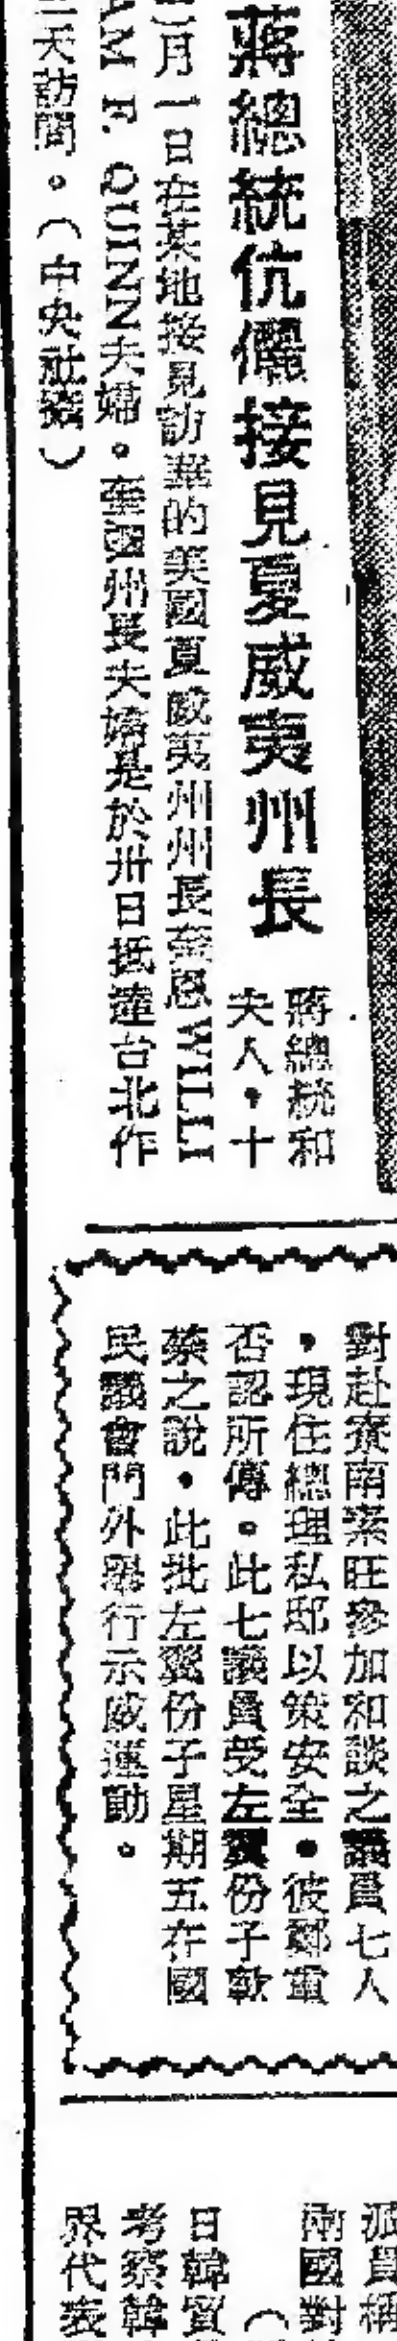 蔣總統伉儷接見夏威夷州長
蔣總統和
夫人，十
月一日在某地接見訪華的美國夏威夷州州長奎恩WILLI
AM F. QUINN夫婦。奎恩州長夫婦是於卅日抵達台北作
三天訪問。（中央社發）
對赴寮南素旺參加和談之議員七人
，現住總理私邸以策安全，彼鄭重
否認所傳。此七議員受左翼份子
之說，此批左翼份子星期五在國
民議會門外舉行示威運動。
派員
兩國對
日韓貿
考察韓
界代表